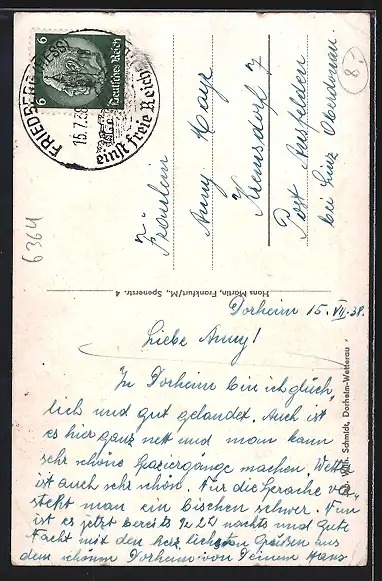 FRIEDBERG (HESS)
15.7.38
einst freie Reichs
6
6
Deutsches Reich
8.
6364
Fräulein
Anny Haye
Kremsdorf 7
Post Ansfelden
bei Linz Oberdonau.
Hans Martin, Frankfurt/M., Spenerstr. 4
Schmidt, Dorheim-Wetterau
Dorheim 15. VII. 38.
Liebe Anny!
In Dorheim bin ich glück,
lich und gut gelandet. Auch ist
es hier ganz nett und man kann
sehr schöne Spaziergänge machen. Wetter
ist auch sehr schön. Für die Sprache ver,
steht man ein bischen schwer. Nun
ist es jetzt bereits nachts und Gute
Nacht mit den herzlichsten Grüßen aus
dem schönen Dorheim von Deinem Hans